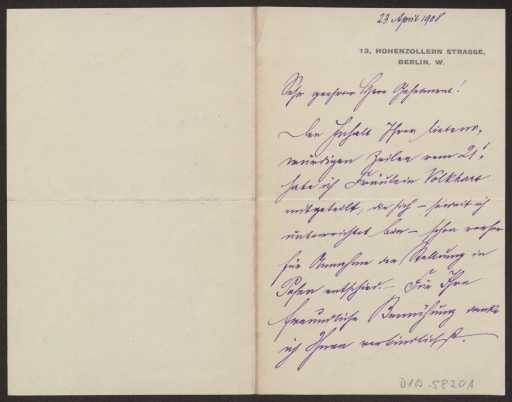 23 April 1908
13, HOHENZOLLERN STRASSE,
BERLIN, W.
Sehr geehrter Herr Geheimrat!
Den Inhalt Ihrer liebens-
würdigen Zeilen vom 21!
habe ich Fräulein Volkhart
mitgeteilt, die sich – soweit ich
unterrichtet bin – schon vorher
für Annahme der Stellung in
Posen entschied. – Für Ihre
freundliche Bemühung danke
ich Ihnen verbindlichst.